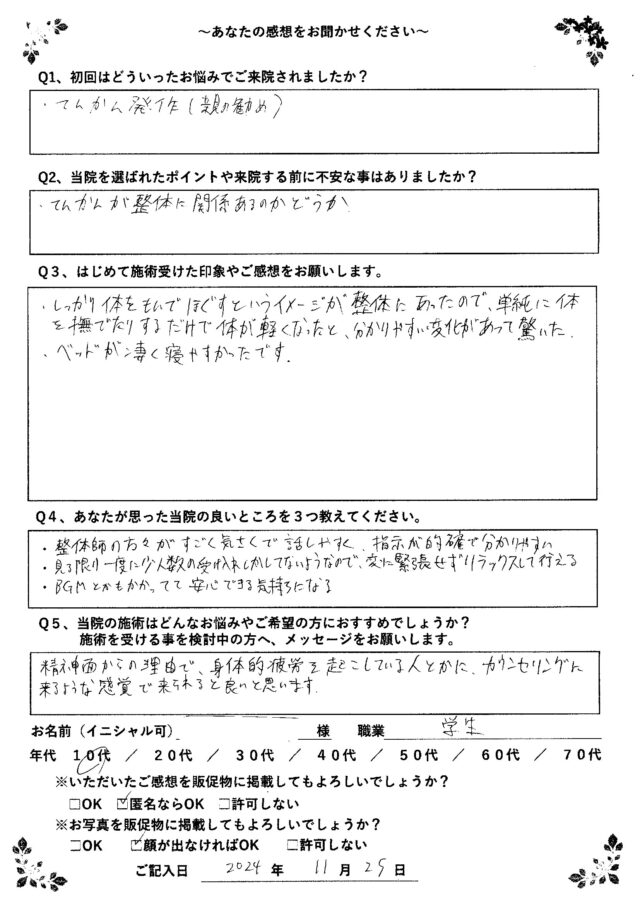 ～あなたの感想をお聞かせください～
Q1、初回はどういったお悩みでご来院されましたか？
・てんかん発作（親の勧め）
Q2、当院を選ばれたポイントや来院する前に不安な事はありましたか？
・てんかんが整体に関係あるのかどうか
Q３、はじめて施術受けた印象やご感想をお願いします。
・しっかり体をもんでほぐすというイメージが整体にあったので、単純に体
を撫でたりするだけで体が軽くなったと、分かりやすい変化があって驚いた.
・ベッドが凄く寝やすかったです.
Q４、あなたが思った当院の良いところを３つ教えてください。
・整体師の方々がすごく気さくで話しやすく、指示が的確で分かりやすい
・見る限り一度に少人数の受け入れしかしてないようなので、変に緊張せずリラックスして行える
・BGMとかもかかってて安心できる気持ちになる
Q５、当院の施術はどんなお悩みやご希望の方におすすめでしょうか？
施術を受ける事を検討中の方へ、メッセージをお願いします。
精神面からの理由で、身体的疲労を起こしている人とかに、カウンセリングに
来るような感覚で来られると良いと思います.
お名前（イニシャル可） 様 職業 学生
年代 １０代 ／ ２０代 ／ ３０代 ／ ４０代 ／ ５０代 ／ ６０代 ／ ７０代
※いただいたご感想を販促物に掲載してもよろしいでしょうか？
□OK ☑匿名ならOK □許可しない
※お写真を販促物に掲載してもよろしいでしょうか？
□OK ☑顔が出なければOK □許可しない
ご記入日 2024 年 11 月 25 日